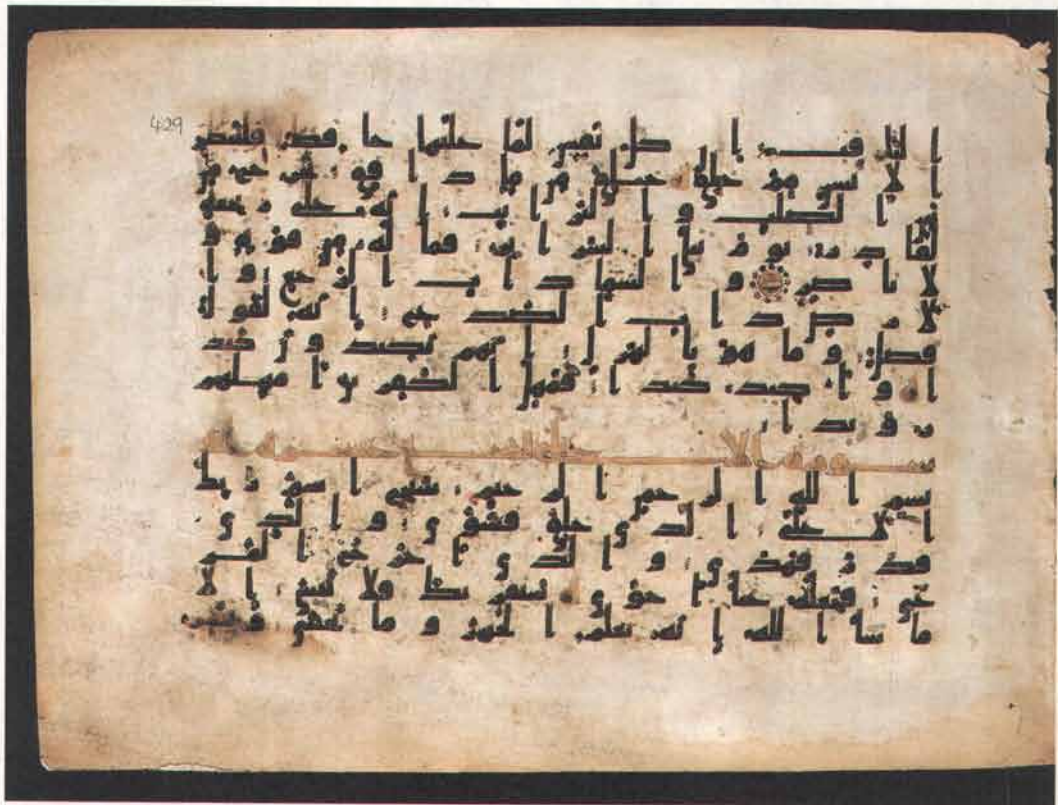 429
الثاقب ان كل نفس لما عليها حافظ فلينظر
الانسن مم خلق خلق من ما دافق يخرج من
بين الصلب والترايب انه على رجعه
لقادر يوم تبلى السراير فما له من قوة و
لا ناصر والسما ذات الرجع وا
لارض ذات الصدع انه لقول
فصل وما هو بالهزل انهم يكيدون كيد
ا واكيد كيدا فمهل الكفرين امهلهم
رويدا
سورة الاعلى
بسم الله الرحمن الرحيم سبح اسم ربك
الاعلى الذي خلق فسوي والذي
قدر فهدي والذي اخرج المر
عي فجعله غثا احوي سنقريك فلا تنسي الا
ما شا الله انه يعلم الجهر وما يخفي ونيسر